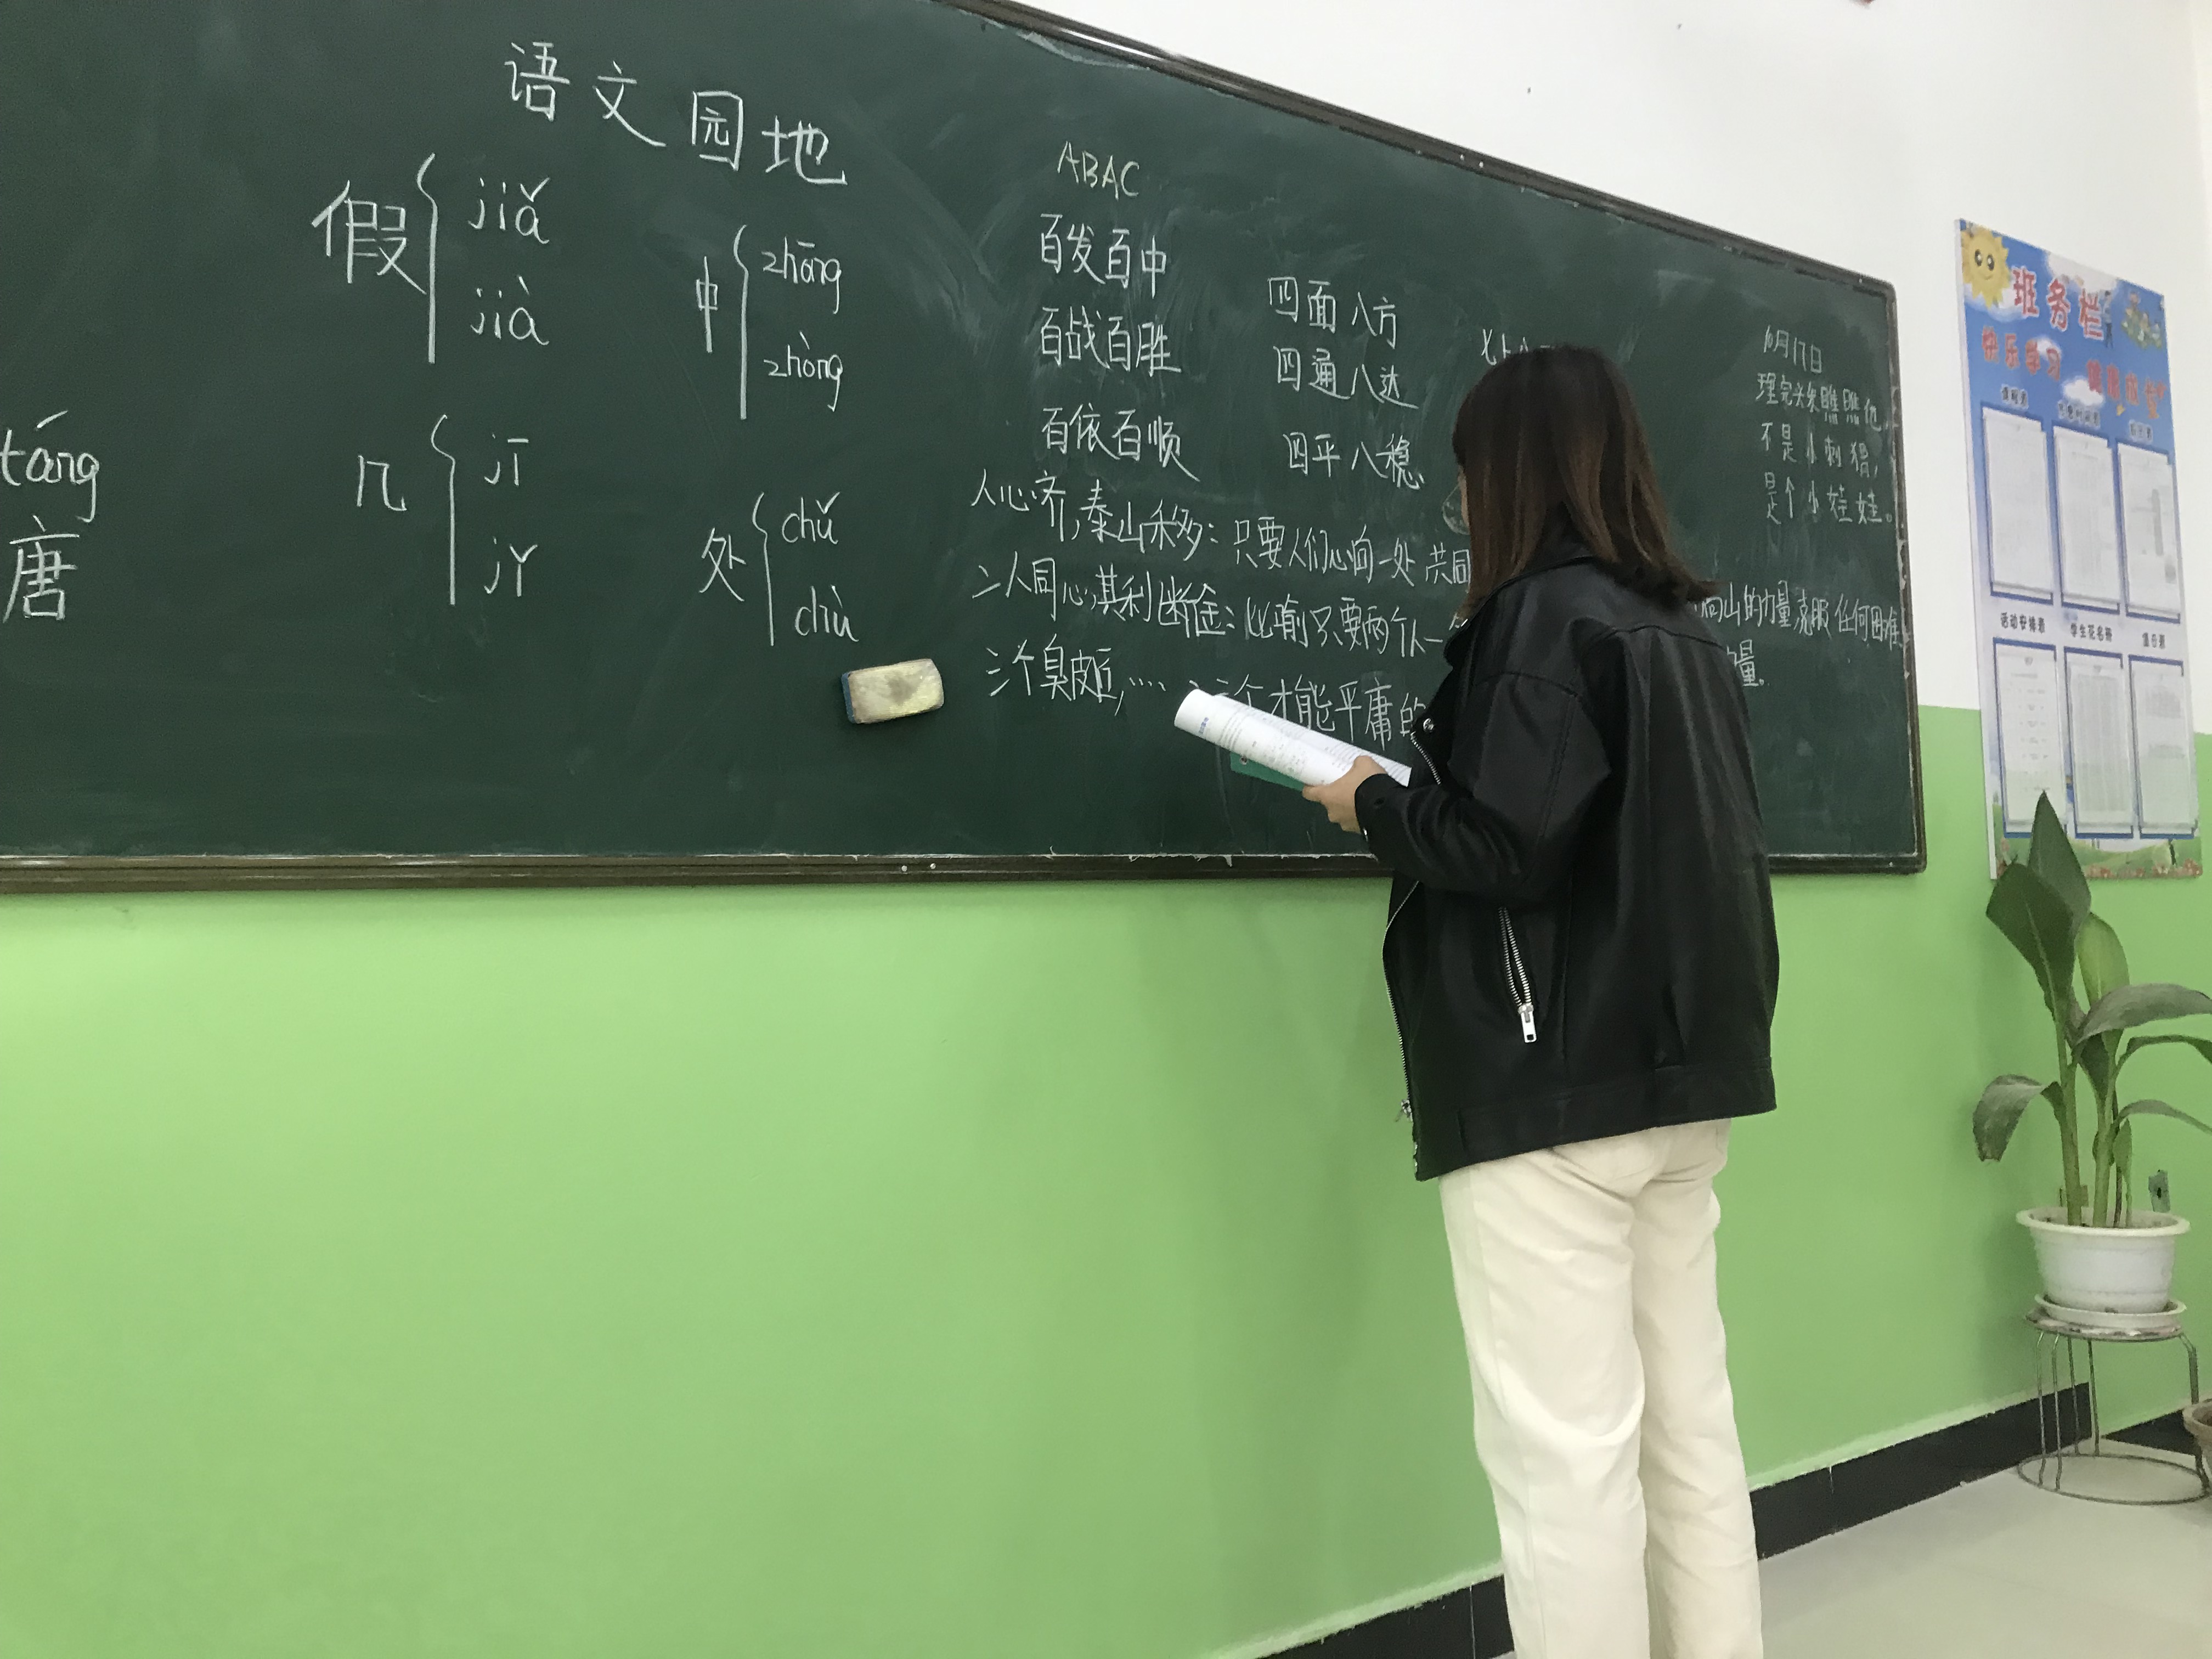 语文园地
假 jiǎ
jià
中 zhōng
zhòng
táng
唐
几 jī
jǐ
处 chǔ
chù
ABAC
百发百中
百战百胜
百依百顺
四面八方
四通八达
四平八稳
人心齐,泰山移:只要人们心向一处 共同
二人同心,其利断金:比喻只要两个人一
山的力量克服任何困难
三个臭皮匠,……
三个才能平庸的
量。
10月17日
理完头发瞧瞧他,
不是小刺猬,
是个小娃娃。
班务栏
快乐学习 健康成长
课程表
作息时间表
活动安排表
学生花名册
值日表